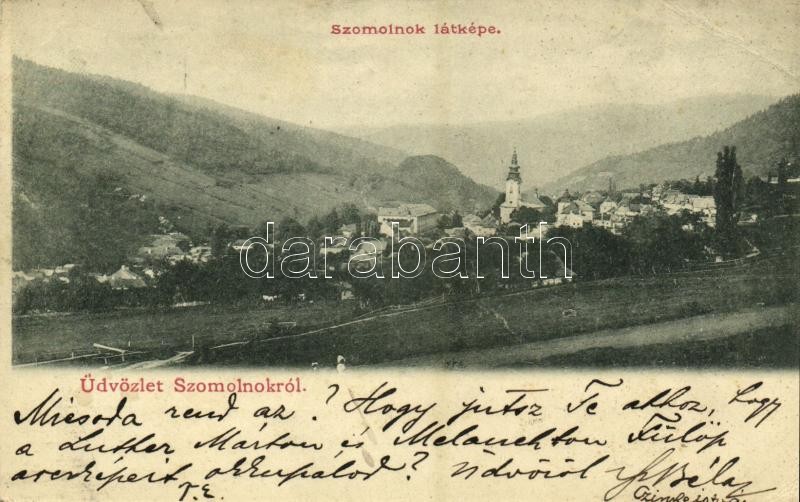 Szomolnok látképe.
darabanth
Üdvözlet Szomolnokról.
Micsoda rend az? Hogy jutsz Te ahhoz, hogy
a Luther Márton és Melanchton Fülöp
arcképeit okkupálod? Üdvözöl
Béla
T. E.